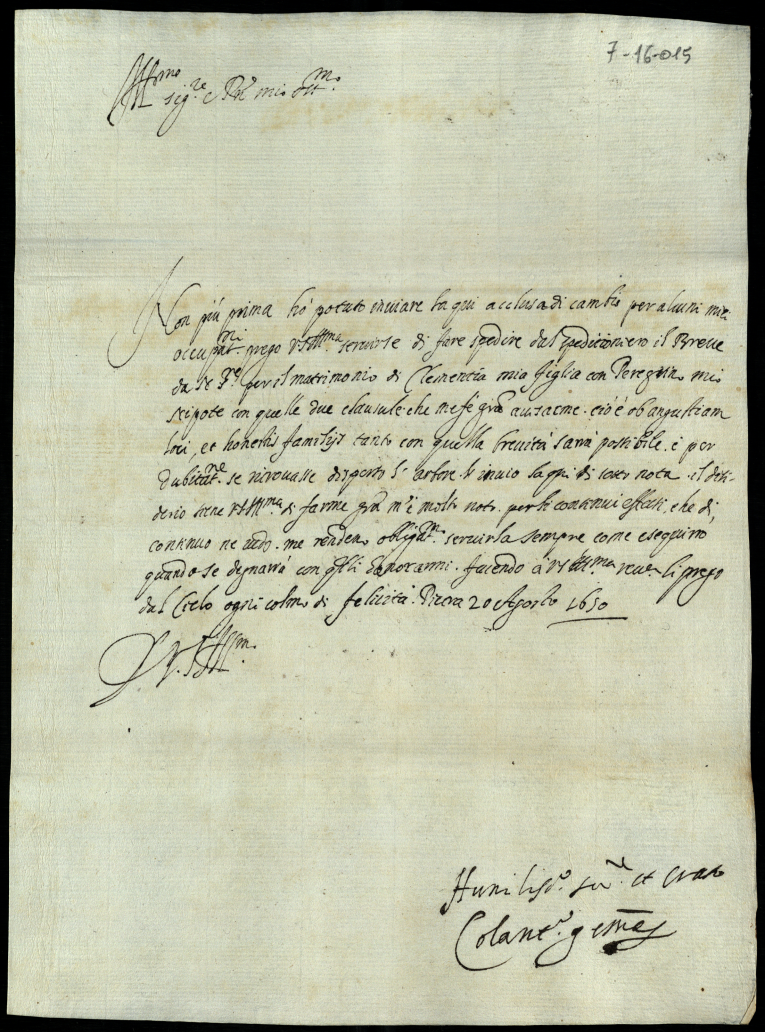 7-16-015
Ill.mo
Sig.re e P.ne mio oss.mo
Non più prima hò potuto inviare la qui acclusa di cambio per alcuni miei
occupat.ni prego V.S. Ill.ma servirse di fare spedire dal speditioniero il Breve
da N. S.re per il matrimonio di Clementia mia figlia con Peregrino mio
Nepote con quelle due clausule che mi fe gra avisarme cio è ob angustiam
loci, et honestis familijs tanto con quella brevità sarrà possibile. e per
dubitat.ne se ritrovasse disperso l'arbore l'invio la qui di sotto nota. il desi-
derio tiene V.S. Ill.ma di farme gra m'è molto noto per li continui effetti che di
continuo ne vedo. me rendeno obligat.mo servirla sempre come eseguirò
quando se degnarrà con q.lli d'honorarmi. facendo à V.S. Ill.ma rev.a li prego
dal Cielo ogni colmo di felicità. 20 Agosto 1650
D. V. S. Ill.ma
Humiliss.o ser.re et
Colant.o